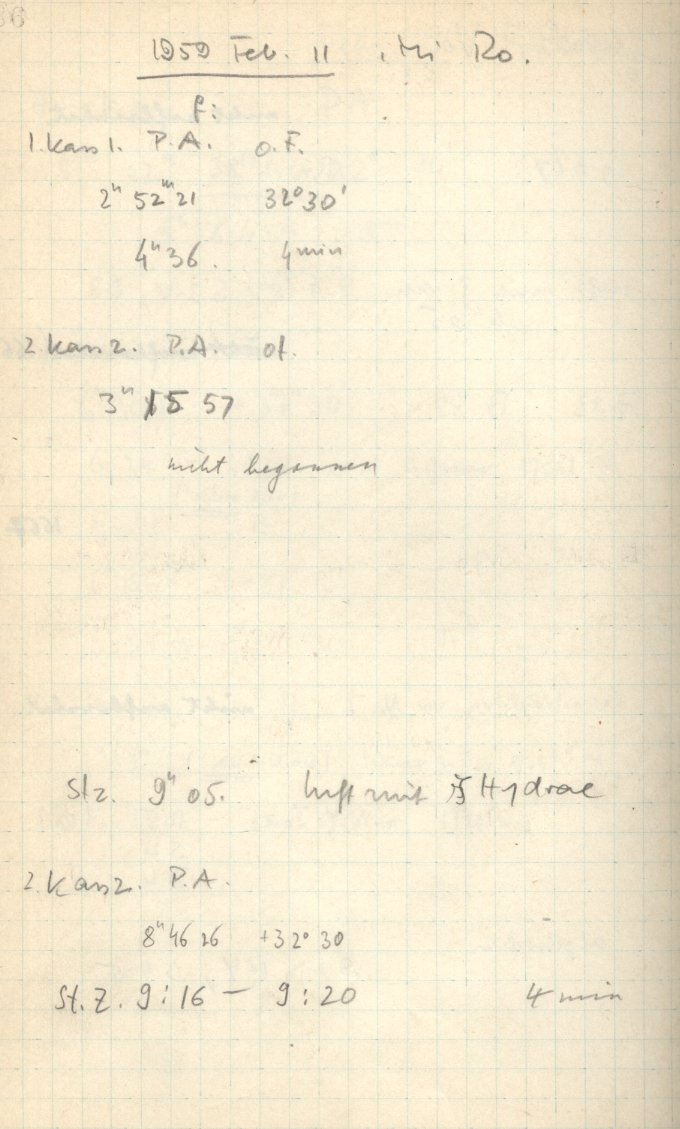 36
1959 Feb. 11 Mi Ro.
f:
1. Kass 1. P.A. o.F.
2ʰ 52ᵐ 21 32°30'
4ʰ 36. 4 min
2. Kass 2. P.A. of.
3ʰ 15 57
nicht begonnen
Stz. 9ʰ 05. Luft mit ζ Hydrae
2. Kass 2. P.A.
8ʰ 46 26 +32° 30
St. Z. 9:16 — 9:20 4 min